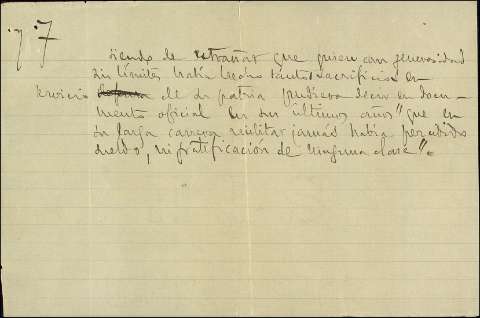 7
siendo de extrañar que quien con generosidad
sin límites había hecho tantos sacrificios en
servicio de su patria pudiera decir en docu-
mento oficial en sus últimos años "que en
su larga carrera militar jamás había percibido
sueldo, ni gratificación de ninguna clase".